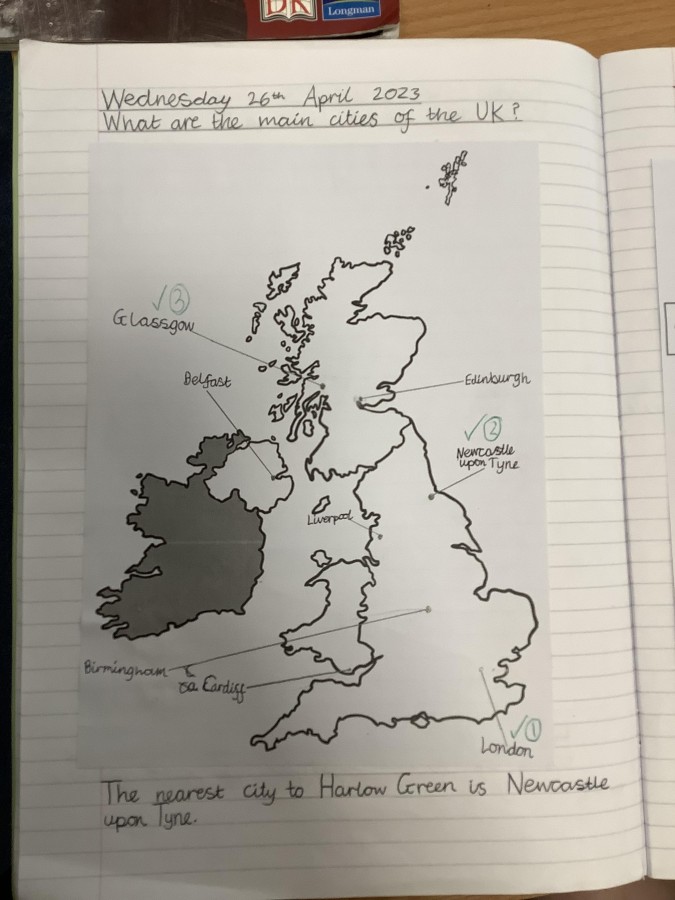 DK
Longman
Wednesday 26th April 2023
What are the main cities of the UK?
✓③
Glassgow
Belfast
Edinburgh
✓②
Newcastle
upon Tyne
Liverpool
Birmingham
Cardiff
✓①
London
The nearest city to Harlow Green is Newcastle
upon Tyne.